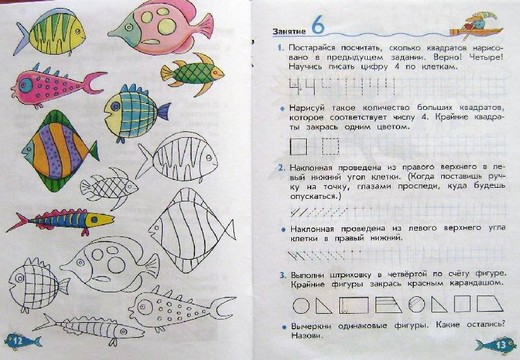 12
Занятие 6
1. Постарайся посчитать, сколько квадратов нарисо-
вано в предыдущем задании. Верно! Четыре!
Научись писать цифру 4 по клеткам.
• Нарисуй такое количество больших квадратов,
которое соответствует числу 4. Крайние квадра-
ты закрась одним цветом.
2. Наклонная проведена из правого верхнего в ле-
вый нижний угол клетки. (Когда поставишь руч-
ку на точку, глазами проследи, куда будешь
опускаться.)
• Наклонная проведена из левого верхнего угла
клетки в правый нижний.
3. Выполни штриховку в четвёртой по счёту фигуре.
Крайние фигуры закрась красным карандашом.
• Вычеркни одинаковые фигуры. Какие остались?
Назови.
13